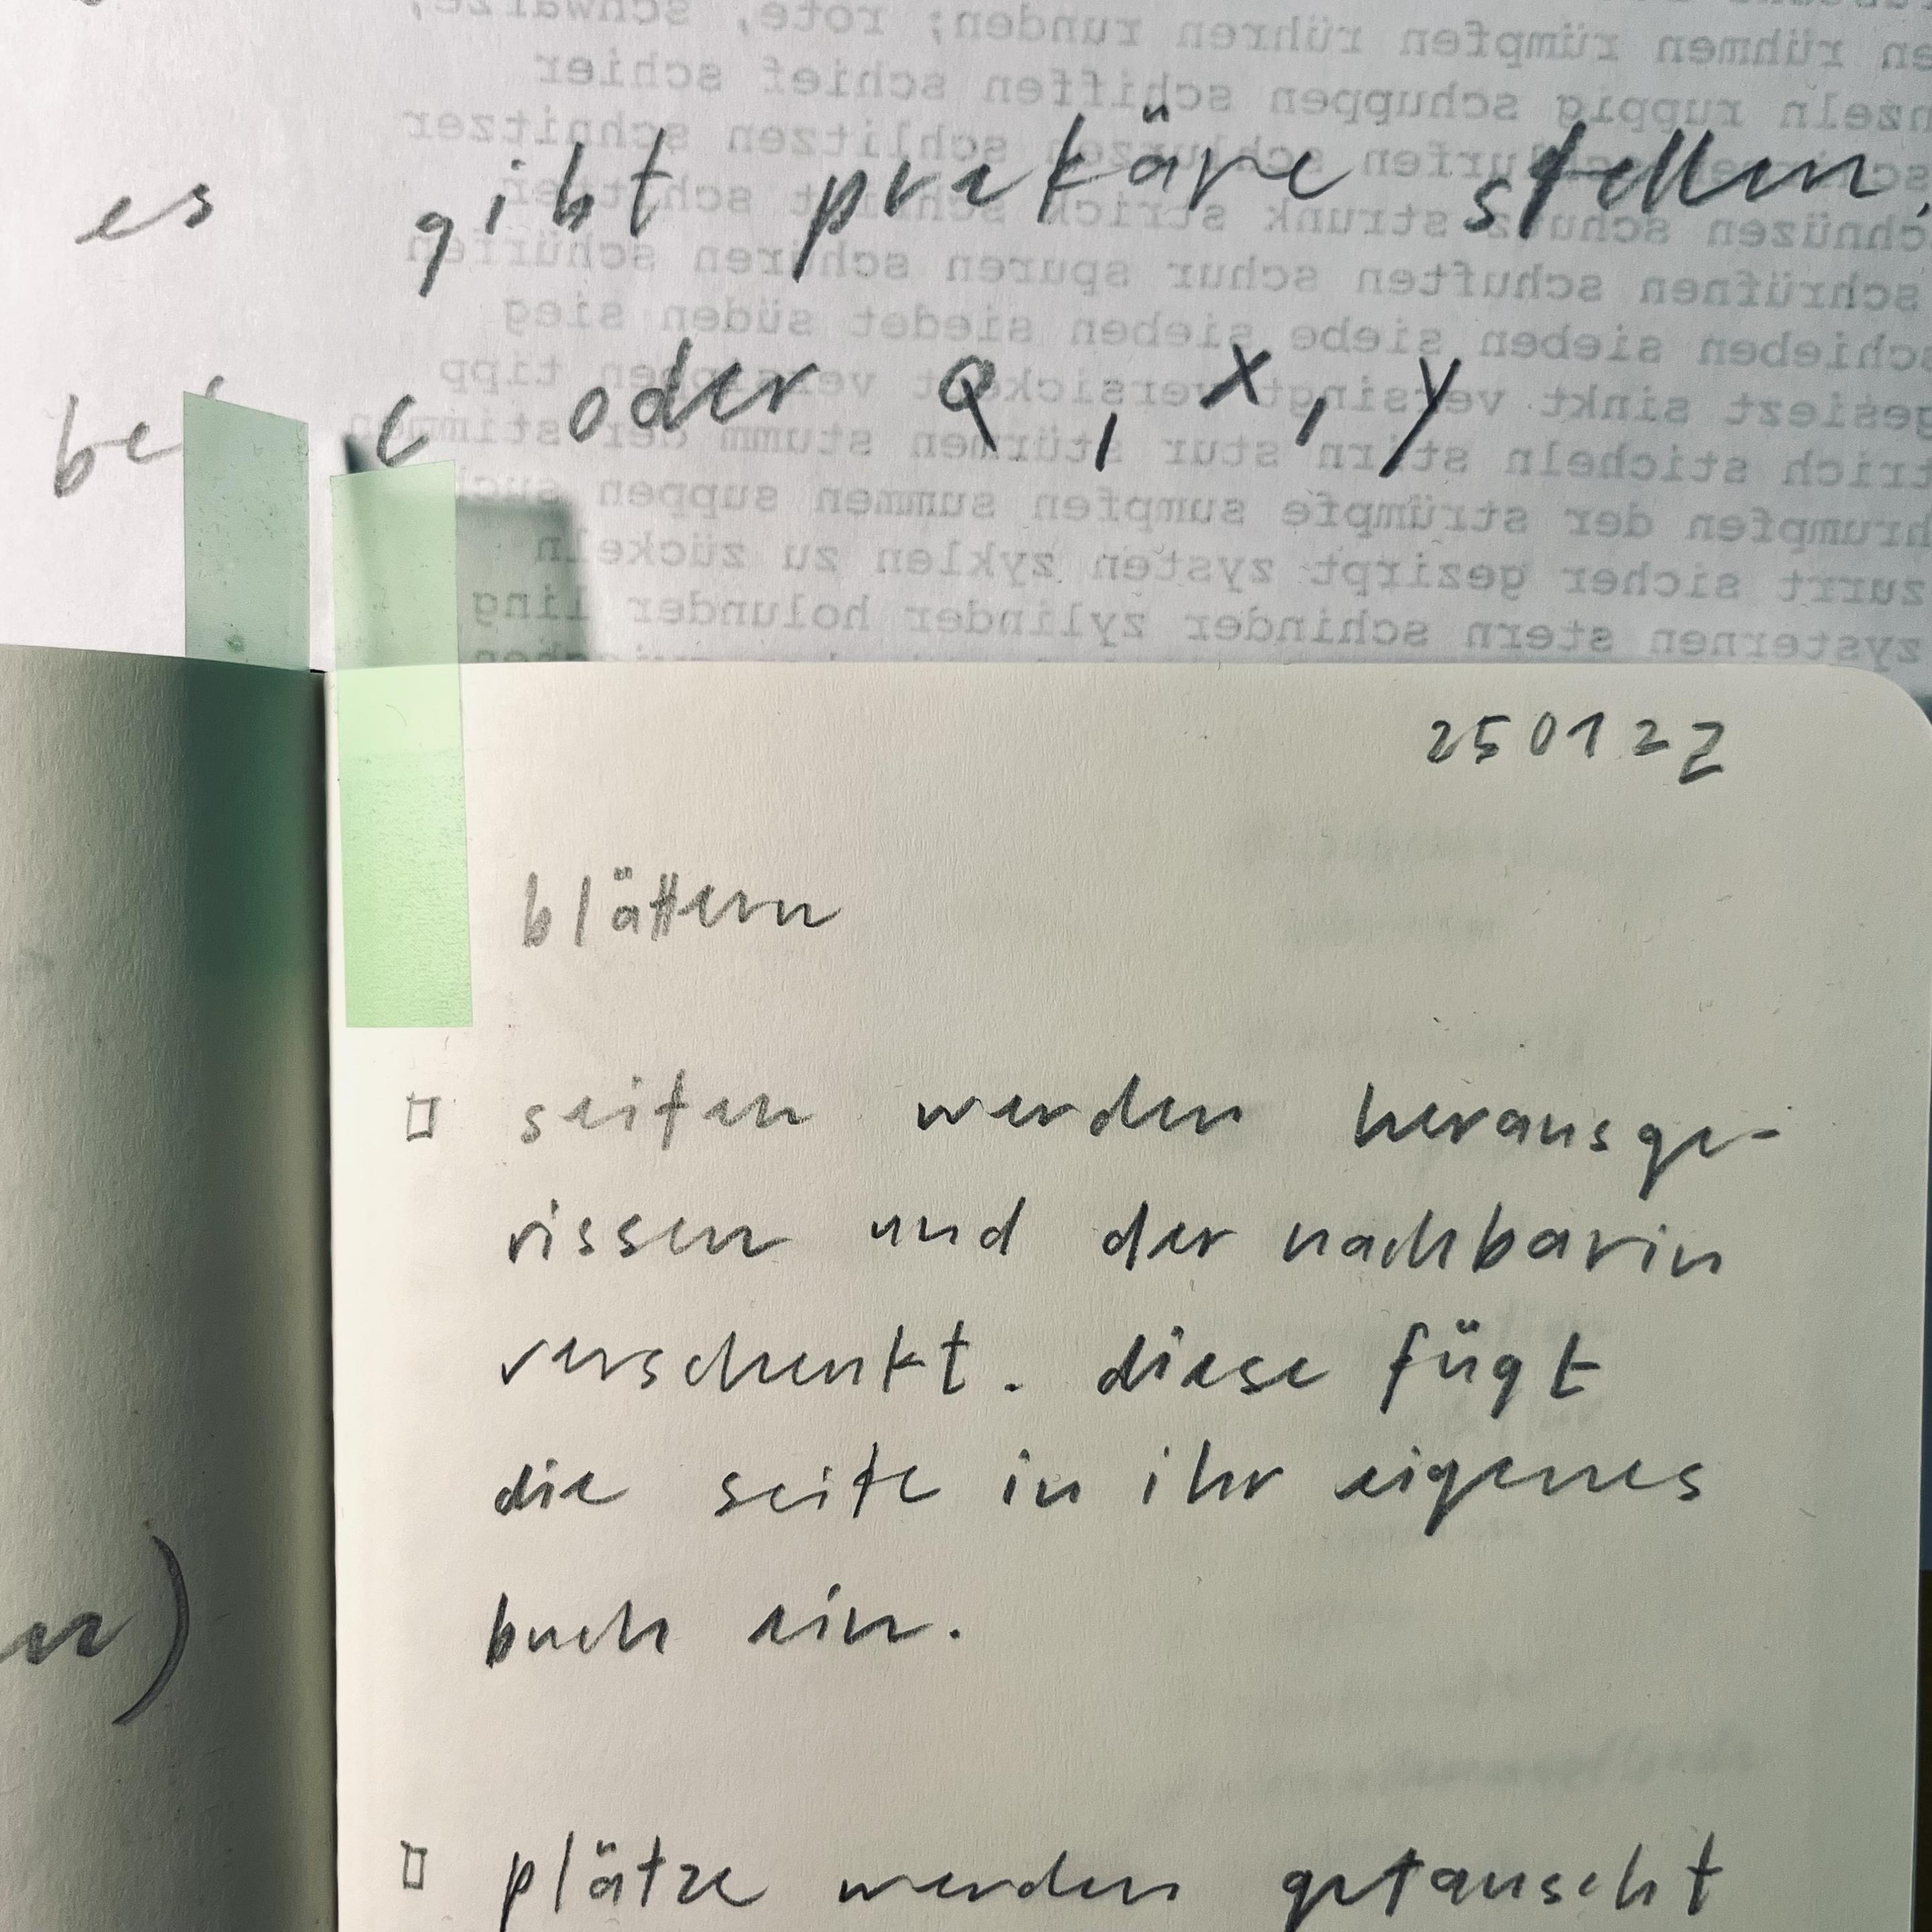 es gibt prekäre stellen,
c oder Q, x, y
250122
blättern
seiten werden herausge-
rissen und der nachbarin
verschenkt. diese fügt
die seite in ihr eigenes
buch ein.
plätze werden getauscht
rühmen rümpfen rühren runden; rote, schwarze,
ruppig schuppen schiffen schief schier
schlitzen schnitzer
strunk strick
schrüfnen schuften schur spuren schüren schürfen
schieben sieben siebe sieben siedet süden sieg
gesiezt sinkt versingt versickert tipp
strich sticheln stirn stur stürmen stumm der stimmen
der strümpfe sumpfen summen suppen
zurrt sicher gezirpt zysten zyklen zu zückeln
zysternen stern schinder zylinder holunder ling